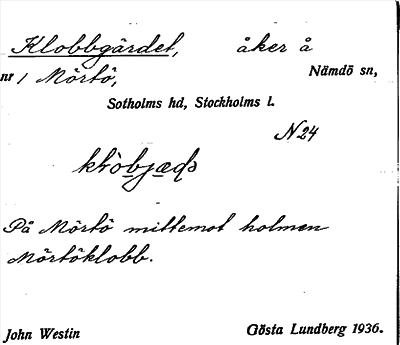 Klobbgärdet, åker å
nr 1 Mörtö, Nämdö sn,
Sotholms hd, Stockholms l.
N24
På Mörtö mittemot holmen
Mörtöklobb.
John Westin Gösta Lundberg 1936.